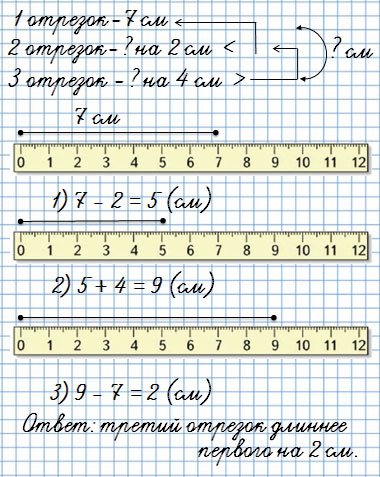 1 отрезок – 7 см
2 отрезок – ? на 2 см <
? см
3 отрезок – ? на 4 см >
7 см
0 1 2 3 4 5 6 7 8 9 10 11 12
1) 7 – 2 = 5 (см)
0 1 2 3 4 5 6 7 8 9 10 11 12
2) 5 + 4 = 9 (см)
0 1 2 3 4 5 6 7 8 9 10 11 12
3) 9 – 7 = 2 (см)
Ответ: третий отрезок длиннее
первого на 2 см.